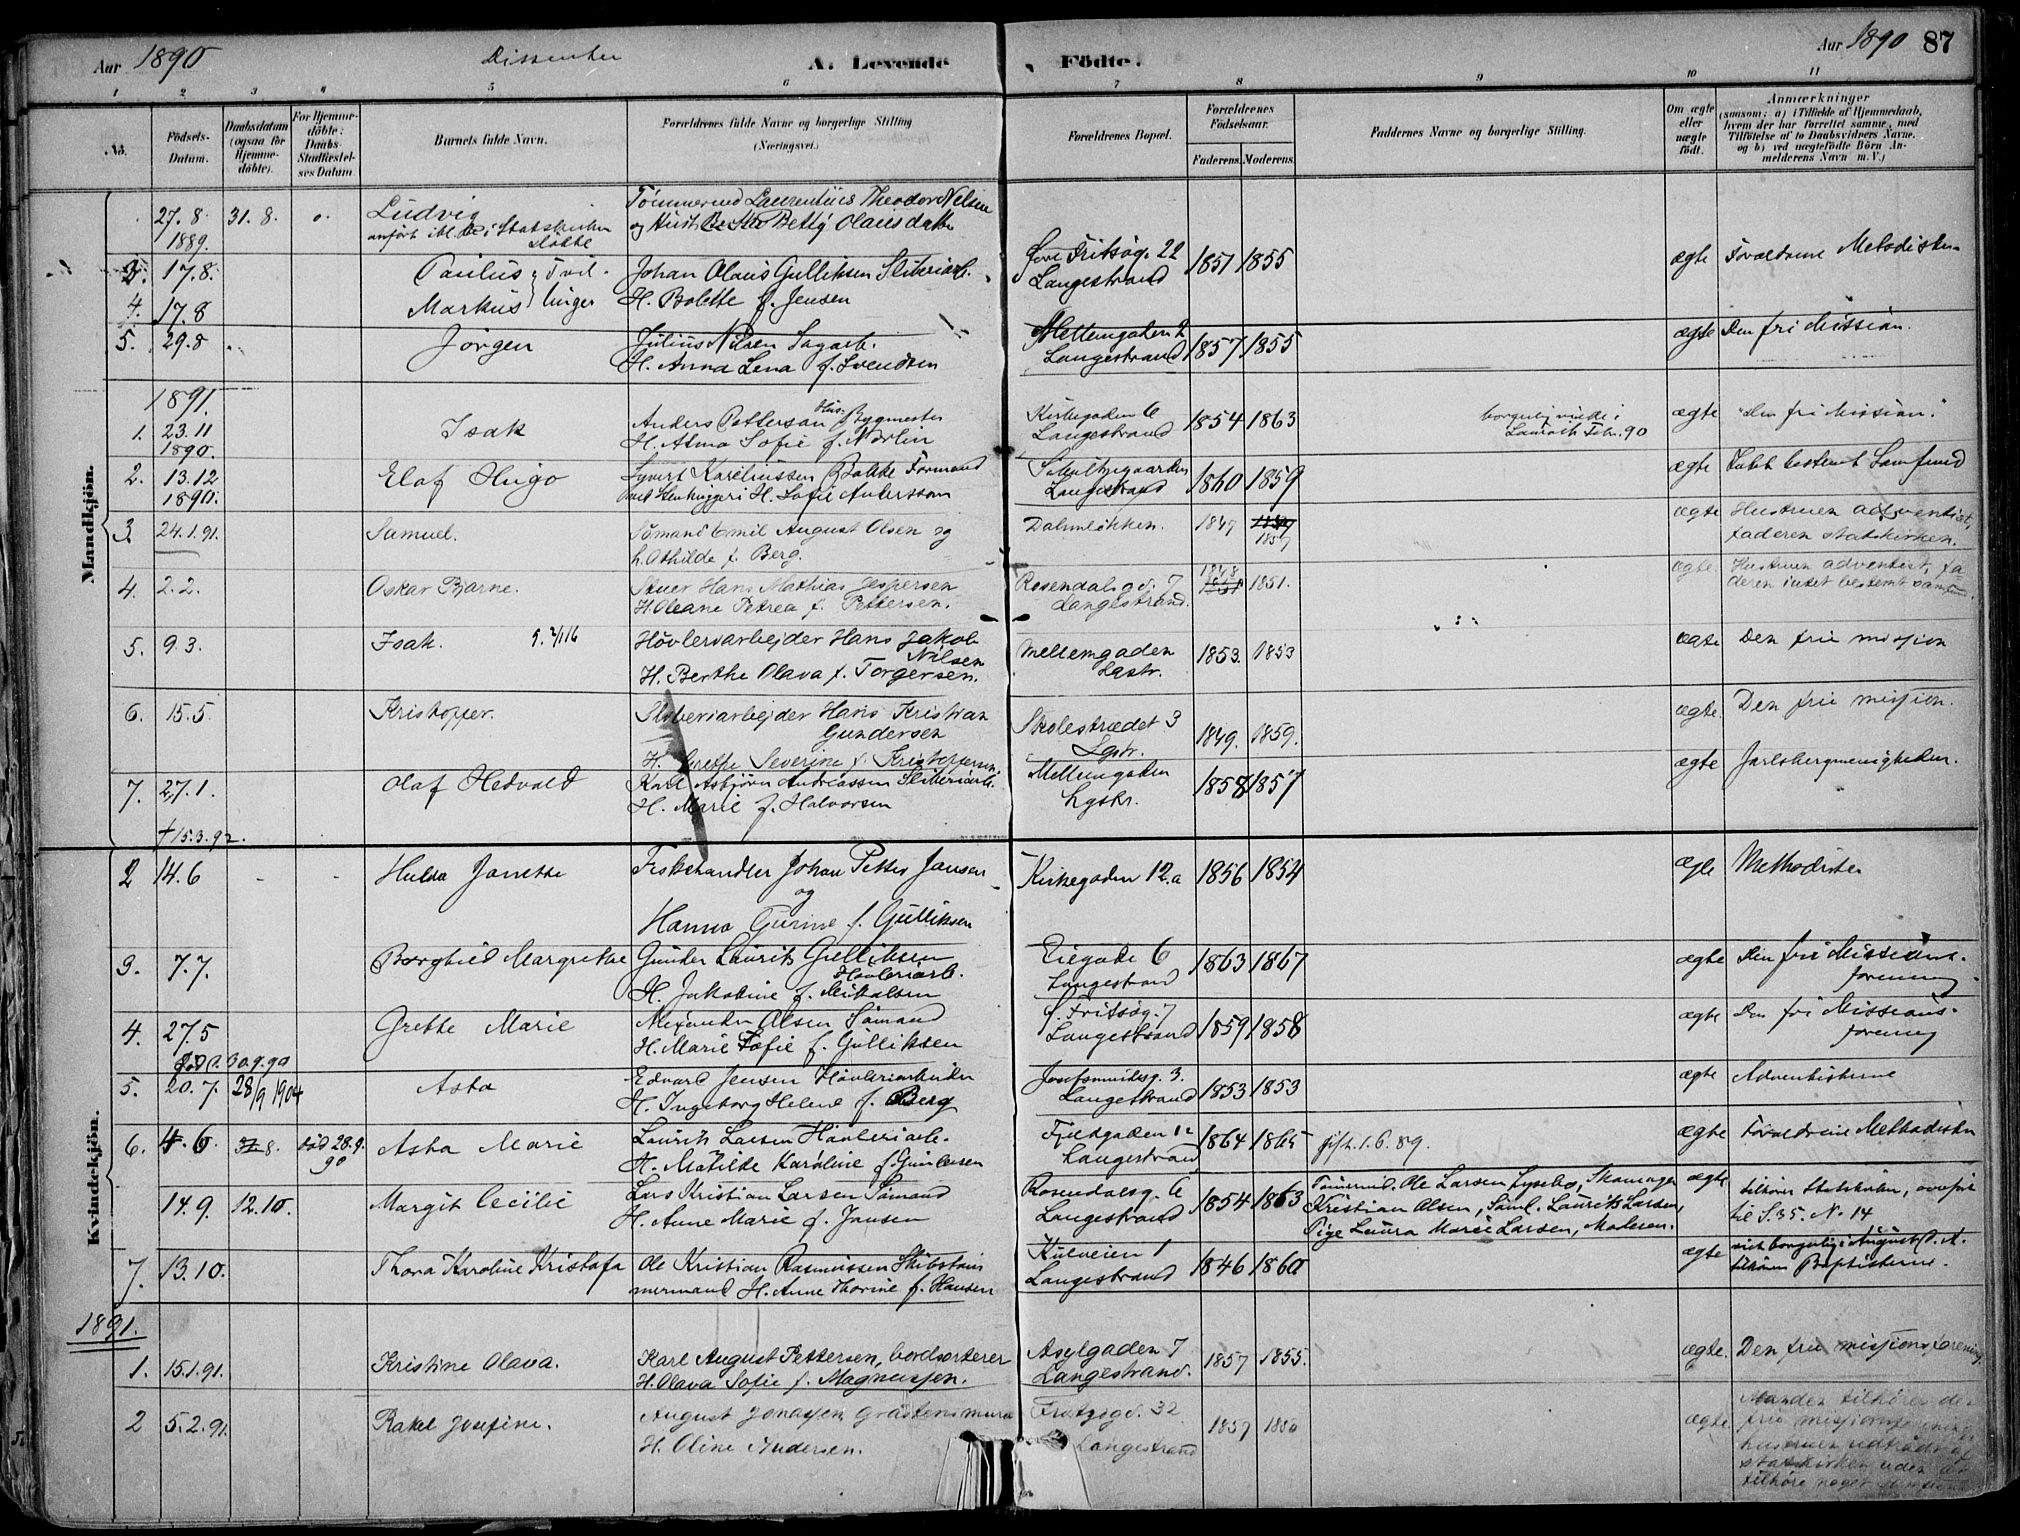 Aar 1890 Dissenter A. Levende Födte. Aar 1890 87
1 2 3 4 5 6 7 8 9 10 11
No. Födsels-Datum. Daabsdatum (ogsaa for Hjemmedöbte). For Hjemmedöbte: Daabs-Stadfæstelses Datum Barnets fulde Navn. Forældrenes fulde Navne og borgerlige Stilling (Næringsvei.) Forældrenes Bopæl. Forældrenes Födselsaar. Faderens. Moderens. Faddernes Navne og borgerlige Stilling. Om ægte eller uægte födt. Anmærkninger (saasom: a) i Tilfælde af Hjemmedaab, hvem der har forrettet samme, med Tilföielse af to Daabsvidners Navne. og b) ved uægtefödte Börn Anmelderens Navn m. V.)
Mandkjön.
27.8. 1889. 31.8. Ludvig Tömmermd Laurentius Theodor Nilsen
og Hust Betty Olausdatter
3. 17.8. Paulus Johan Olaus Gulliksen Sliberiarb. Langestrand 1851 1855 ægte Forældrene Metodister
4. 17.8 Markus Tvillinger H. Bolette f. Jensen
5. 29.8 Jörgen Julius Nilsen Sagarb. Mellemgaden 2 1857. 1855 ægte Den fri Mission.
H. Anna Lena f. Svendsen Langestrand
1891.
1. 23.11 1890. Isak Anders Petterson Bygmester Kirkegaden 6 1854 1863 ægte "Den fri Mission."
H. Alma Sofie f. Norlin Langestrand
2. 13.12 1890. Elof Hugo Syvert Kareliussen Bakke Formand Langestrand 1860 1859 ægte
H. Sofie Andersson
3. 24.1.91. Samuel. Sömand Emil August Olsen og Dolmelökken. 1847 1857 ægte Hustruen adventist,
h. Othilde f. Berg. faderen statskirken.
4. 2.2. Oskar Bjarne. Stuer Hans Mathias Jespersen Rosendalsgd. 7 1848 1851. ægte Hustruen adventist, fa-
H. Oleane Petrea f. Pettersen. Langestrand. deren intet bestemt samfund.
5. 9.3. Isak. Hövleriarbejder Hans Jakob Nilsen Mellemgaden 1853. 1853 ægte Den frie misjion
H. Berthe Olava f. Torgersen. Lgstr.
6. 15.5. Kristoffer. Sliberiarbejder Hans Kristian Gundersen Skolestrædet 3 1849. 1859. ægte. Den frie misjion.
H. Grethe Severine f. Kristoffersen Lgstr.
7. 27.1. Olaf Hedvald Karl Asbjörn Andreassen Sliberiarb. Mellemgaden 1858 1857 ægte Jarlsbergmenigheden.
† 15.3.92. H. Marie f. Halvorsen Lgstr.
Kvindekjön.
2 14.6 Hulda Janette Fiskehandler Johan Petter Jansen Kirkegaden 12.a 1856 1854 ægte Methodister
og
Hanna Gurine f. Gulliksen
3. 7.7. Borghild Margrethe Gunder Laurits Gulliksen Hövleriarb. Eiegade 6 1863 1867 ægte Den fri Missions-
H. Jakobine f. Mikalsen Langestrand forening
4. 27.5 Grethe Marie Alexander Olsen Sömand Fritsög. 7 1859 1858 ægte Den fri Missions-
död d. 30.9.90 H. Marie Sofie f. Gulliksen Langestrand forening
5. 20.7. 28/9 1904 Asta Edvard Jensen Hövleriarbeider 3. 1853 1853 ægte Adventisterne
H. Ingeborg Helene f. Berg Langestrand
6. 4.6 8. död 28.9. 90 Asta Marie Laurits Larsen Hövleriarb. Fjeldgaden 12 1864 1865 gift 1.6.89. ægte Forældrene Methodister
H. Matilde Karoline f. Gundersen Langestrand
14.9. 12.10. Margit Cecilie Lars Kristian Larsen Sömand Rosendalsg. 6 1854 1863 Tömmermd. Ole Larsen ægte tilhörer Statskirken, overfört
H. Anne Marie f. Jansen Langestrand Kristian Olsen, Sömd. Laurits Larsen, til S. 35. N. 14
Pige Laura Marie Larsen, Moderen.
7. 13.10. Thora Karoline Kristofa Ole Kristian Rasmussen Skibstöm- Kulveien 1 1846 1860 ægte
mermand H. Anne Thorine f. Hansen Langestrand tilhörer Baptisterne.
1891.
1. 15.1.91. Kristine Olava. Karl August Pettersen, bordsorterer Asylgaden 7 1857 1855. ægte. Den frie misjionsforening
H. Olava Sofie f. Magnussen. Langestrand.
2 5.2.91. Rakel Josefine. August Jonassen Langestrand 1857 ægte Manden tilhörer den
H. Oline Andersen. frie misjionsforening
hustruen udtraadt af
statskirken uden at
tilhöre noget